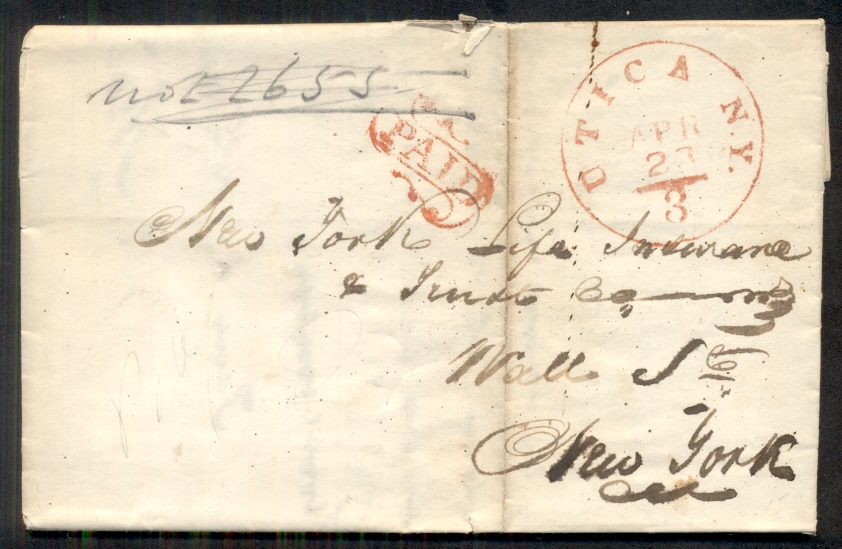 not 2655
PAID
UTICA N.Y.
APR
3
New York Life Insurance
& Trust Co
Wall St
New York